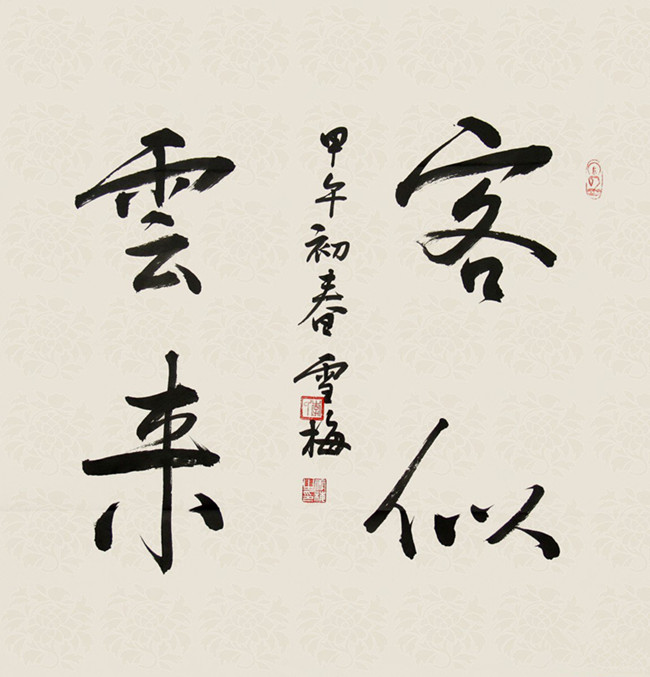 客似
雲来
甲午初春雪梅